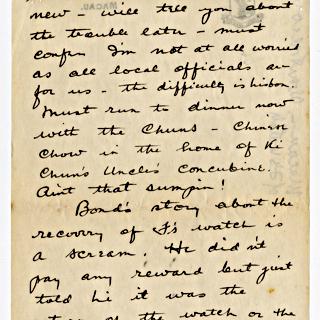 MACAU.
new - will tell you about
the trouble later - must
confess I'm not at all worried
as all local officials are
for us - the difficulty is Lisbon.
Must run to dinner now
with the Chuns - Chinese
Chow in the home of Ki
Chun's Uncle's Concubine.
Aint that sumpin!
Bond's story about the
recovery of J's watch is
a scream! He didn't
pay any reward but just
told hi it was the
of the watch or the